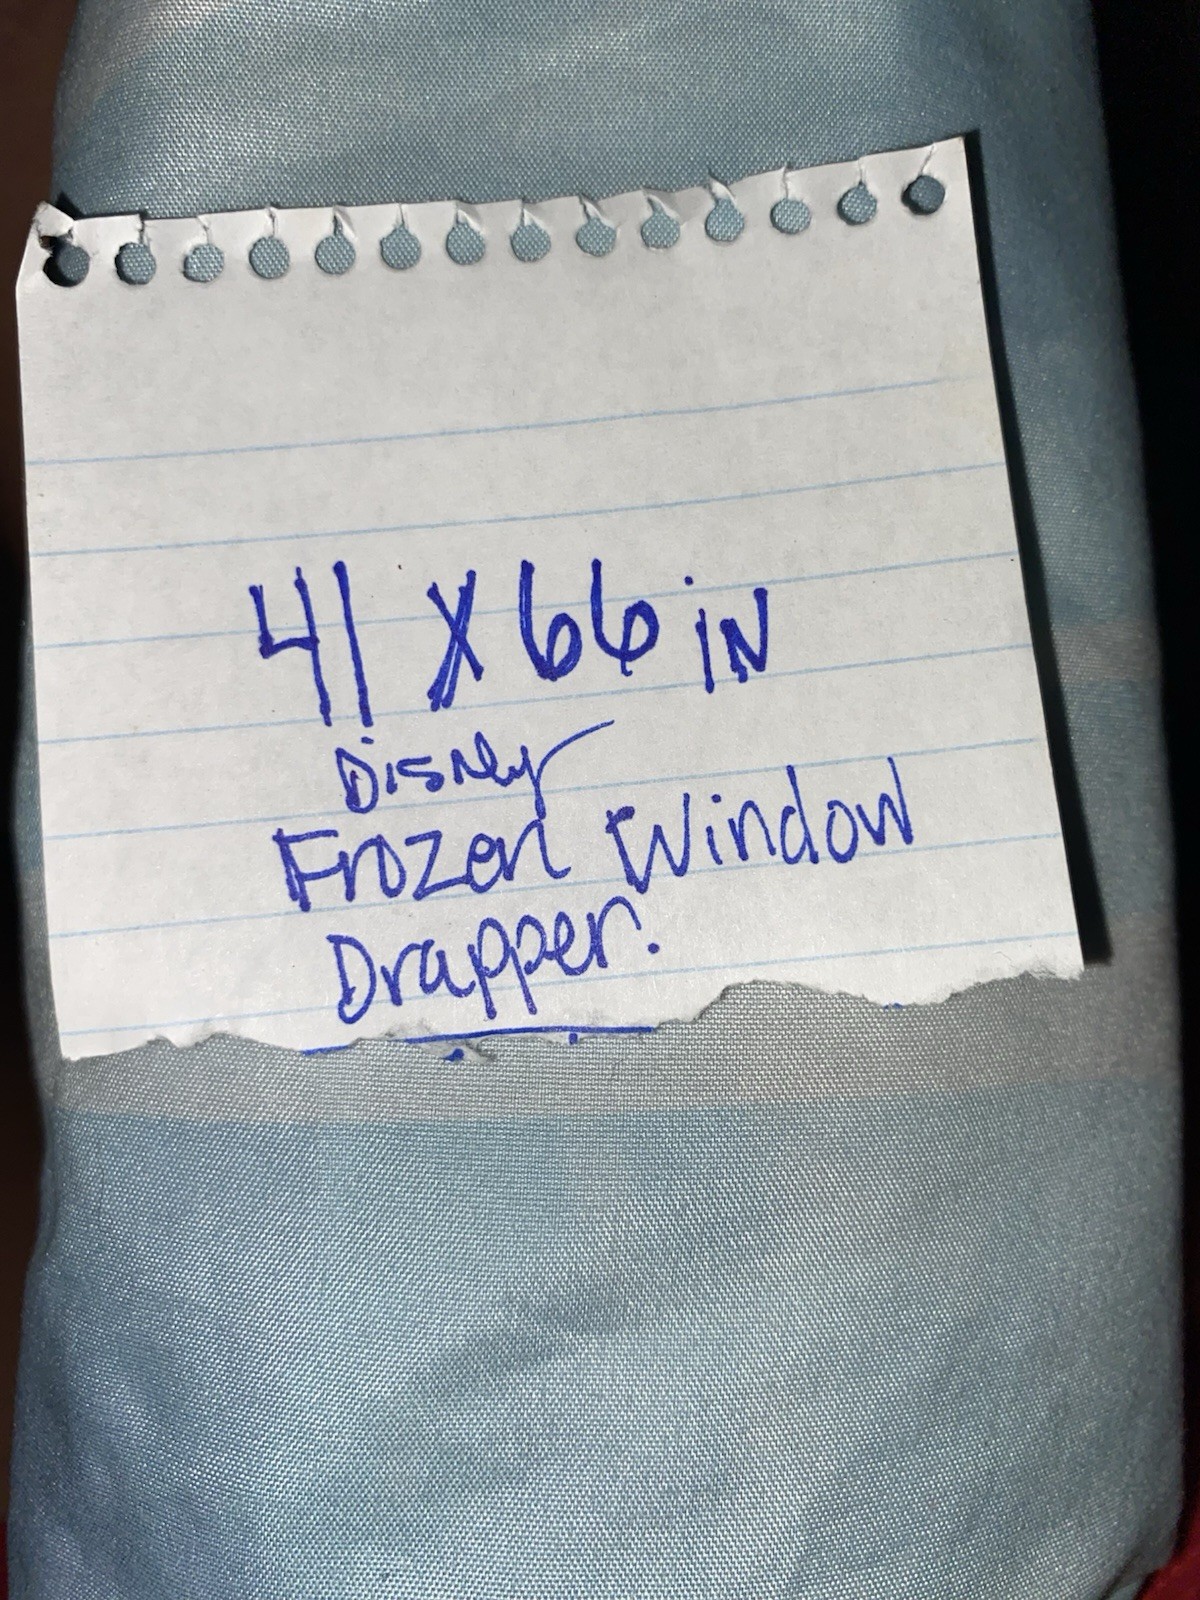 41 X 66 iN
Disney
Frozen Window
Drapper.